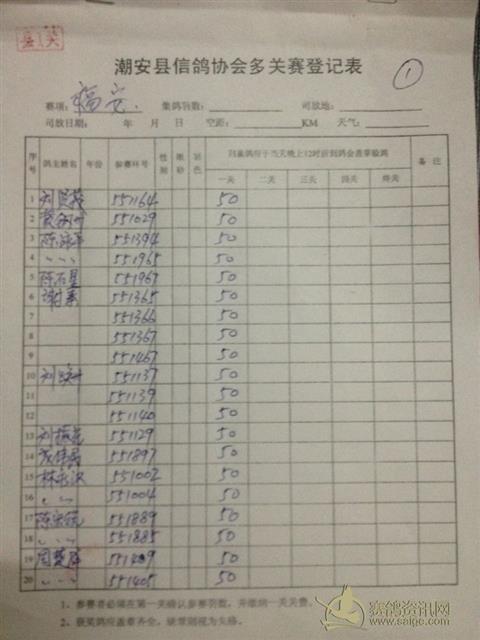 潮安县信鸽协会多关赛登记表
①
赛项: 福安 集鸽羽数: 司放地:
司放日期: 年 月 日 空距: KM 天气:
序号 鸽主姓名 年份 参赛环号 性别 眼砂 羽色 归巢鸽应于当天晚上12时前到鸽会盖章验鸽 备注
一关 二关 三关 四关 终关
1 551164 50
2 551029 50
3 551394 50
4 551965 50
5 陈石星 551967 50
6 551365 50
7 551366 50
8 551367 50
9 551467 50
10 551137 50
11 551139 50
12 551140 50
13 551129 50
14 551897 50
15 551002 50
16 551004 50
17 551889 50
18 551885 50
19 50
20 551405 50
1、参赛者必须在第一关确认参赛羽数,并缴纳一关关费。
2、获奖鸽应盖章齐全,缺章则视为失格。
赛鸽资讯网
www.saige.com